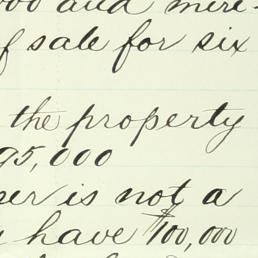 000 and mere-
of sale for six
the property
95,000
ser is not a
have $100,000